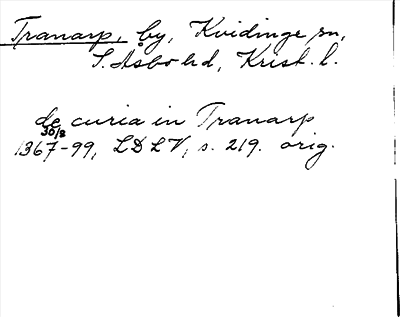 Tranarp, by, Kvidinge sn,
S. Åsbo hd, Krist. l.
de curia in Tranarp
30/3
1367-99, LDLV, s. 219. orig.